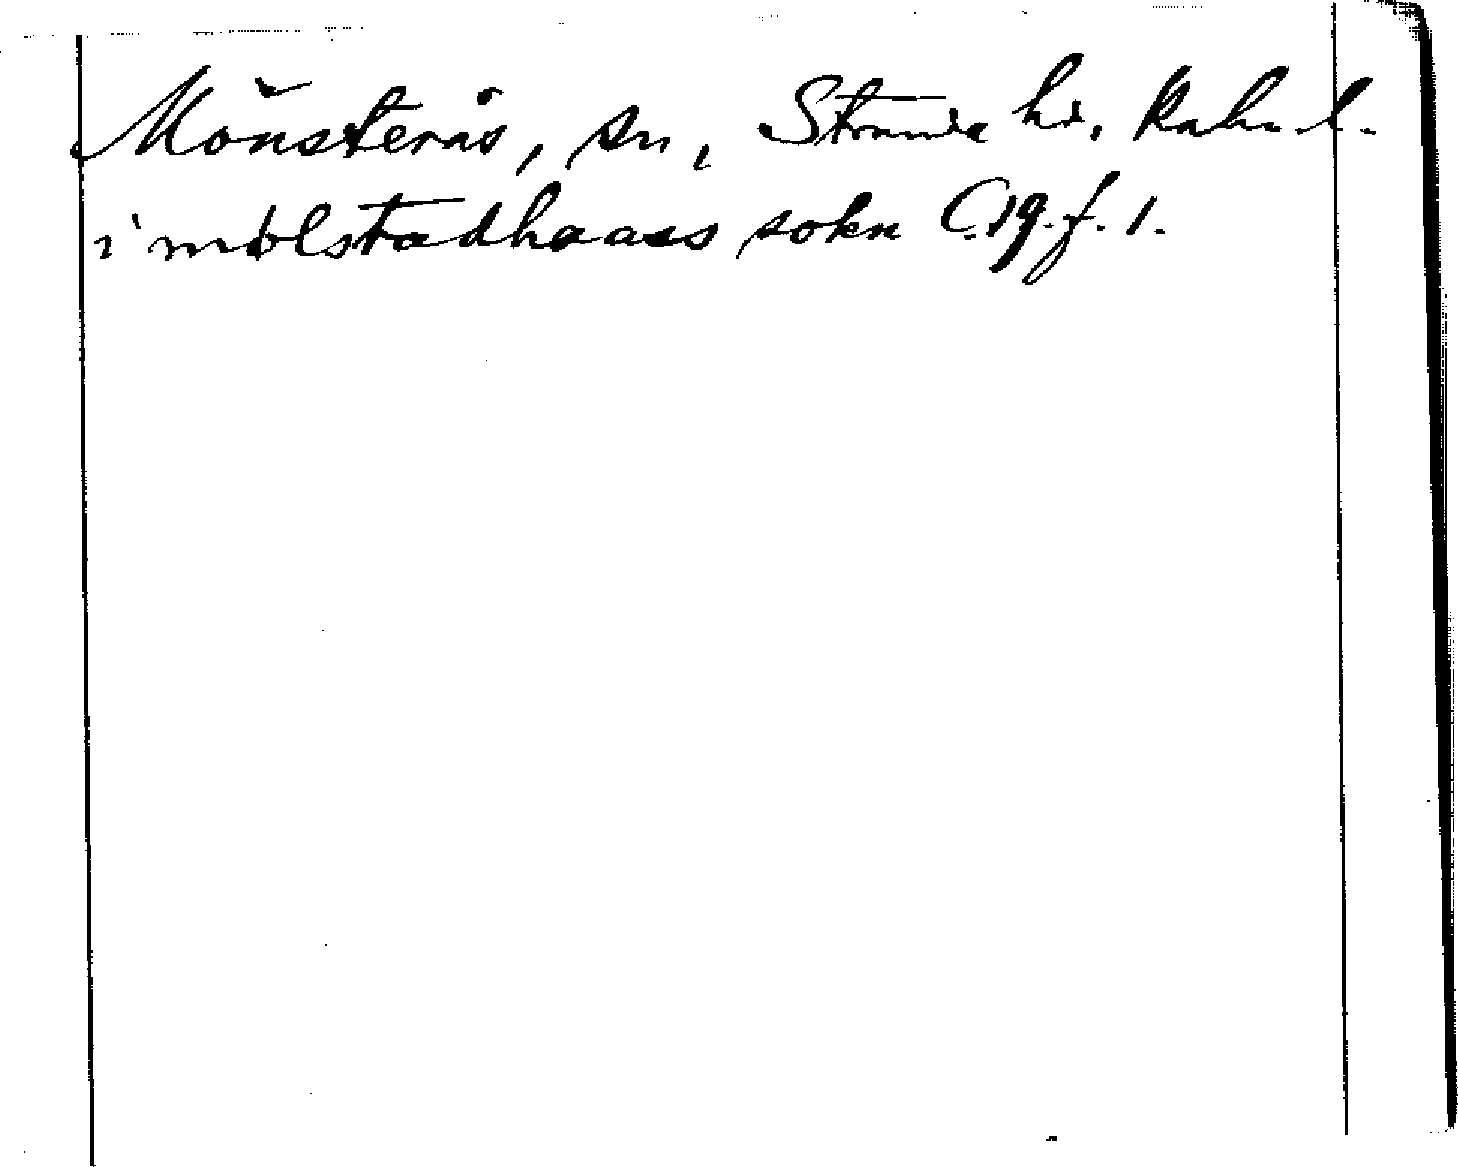 Mönsterås, sn, Stranda hd. Kalm. l.
i mølstadhaass sokn C. 19. f. 1.